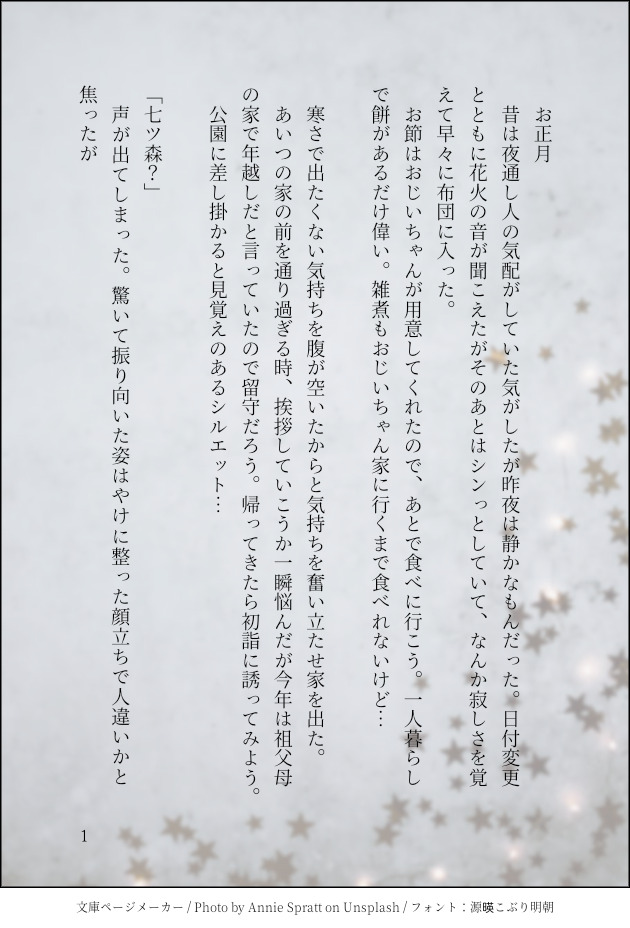 お正月
昔は夜通し人の気配がしていた気がしたが昨夜は静かなもんだった。日付変更
とともに花火の音が聞こえたがそのあとはシンっとしていて、なんか寂しさを覚
えて早々に布団に入った。
お節はおじいちゃんが用意してくれたので、あとで食べに行こう。一人暮らし
で餅があるだけ偉い。雑煮もおじいちゃん家に行くまで食べれないけど…
寒さで出たくない気持ちを腹が空いたからと気持ちを奮い立たせ家を出た。
あいつの家の前を通り過ぎる時、挨拶していこうか一瞬悩んだが今年は祖父母
の家で年越しだと言っていたので留守だろう。帰ってきたら初詣に誘ってみよう。
公園に差し掛かると見覚えのあるシルエット…
「七ツ森？」
声が出てしまった。驚いて振り向いた姿はやけに整った顔立ちで人違いかと
焦ったが
1
文庫ページメーカー / Photo by Annie Spratt on Unsplash / フォント：源暎こぶり明朝